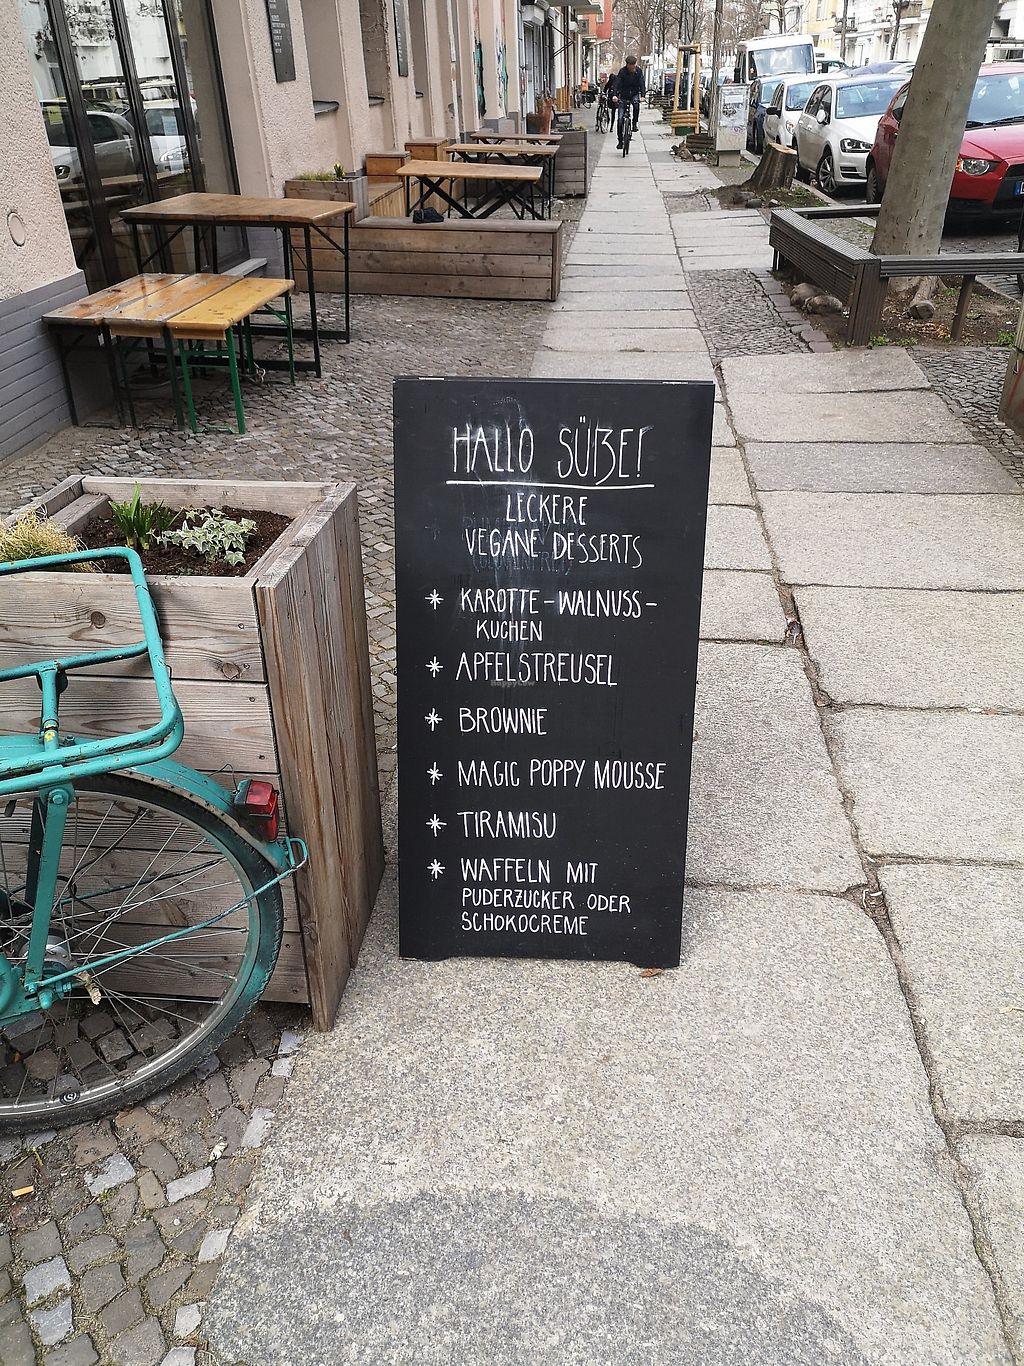 HALLO SÜßE!
LECKERE
VEGANE DESSERTS
* KAROTTE-WALNUSS-
KUCHEN
* APFELSTREUSEL
* BROWNIE
* MAGIC POPPY MOUSSE
* TIRAMISU
* WAFFELN MIT
PUDERZUCKER ODER
SCHOKOCREME
HappyCow